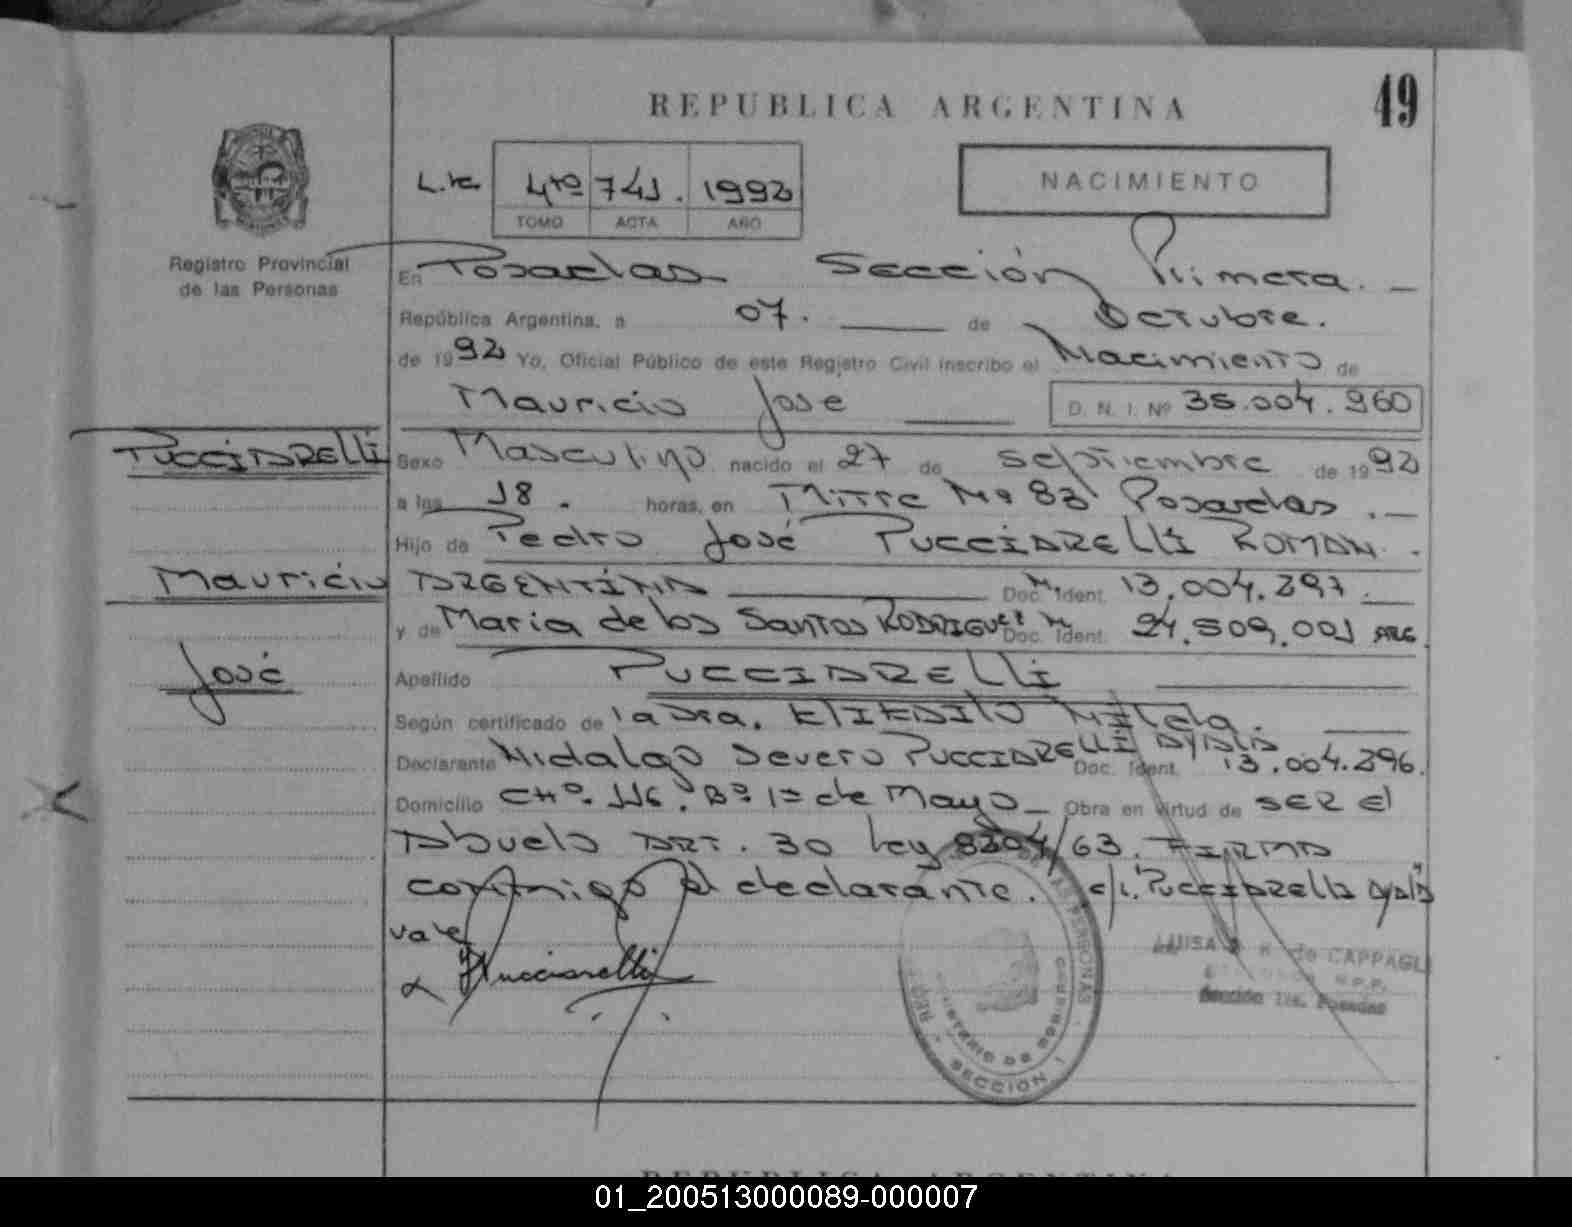 49
REPUBLICA ARGENTINA
NACIMIENTO
4to 741. 1992
TOMO ACTA AÑO
Registro Provincial
de las Personas
En Posadas Sección Primera.
República Argentina, a 07. de Octubre.
de 1992 Yo, Oficial Público de este Registro Civil inscribo el Nacimiento de
Mauricio José D. N. I. Nº 35.004.960
PUCCIARELLI
Sexo Masculino nacido el 27 de septiembre de 1992
a las 18. horas, en Mitre Nº 83 Posadas.
Hijo de Pedro José PUCCIARELLI ROMAN.
Mauricio
ARGENTINA Doc. Ident. 13.004.397.
y de Maria de los Santos RODRIGUEZ Doc. Ident. 24.509.001 ARG.
José
Apellido PUCCIARELLI
Según certificado de la Dra.
Declarante Hidalgo Severo PUCCIARELLI AYALA Doc. Ident. 13.004.396.
Domicilio CHº. 116. Bº 1º de Mayo Obra en virtud de SER El
Abuelo ART. 30 Ley 8204/63. FIRMA
conmigo el declarante. PUCCIARELLI
Vale
Pucciarelli
LUISA de CAPPAGLI
R.P.P.
Sección 1ra. Posadas
SECCION 1
REPUBLICA ARGENTINA
01_200513000089-000007